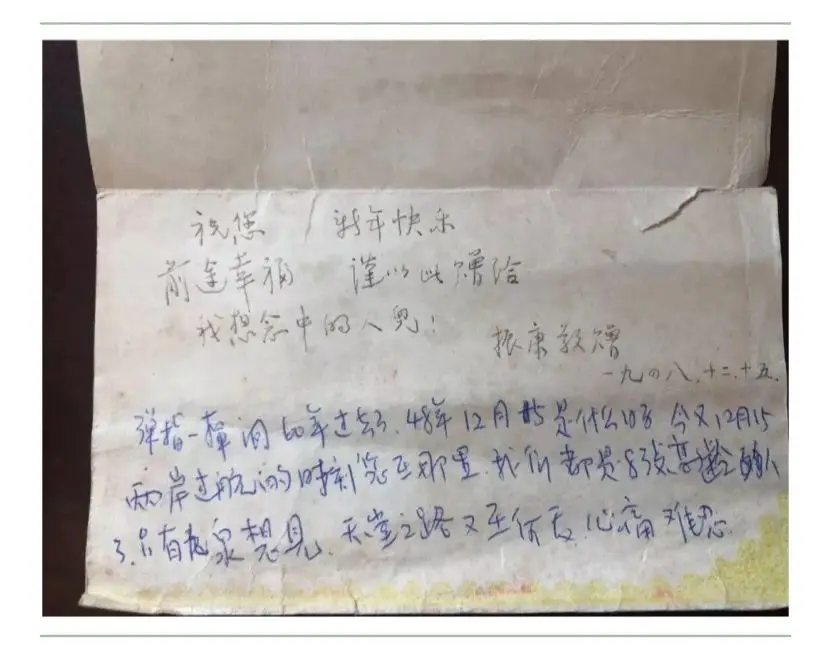 祝您 新年快乐
前途幸福 谨以此赠给
我想念中的人儿！
振康敬赠
一九四八.十二.十五.
弹指一挥间60年过去了.48年12月15是什么日子 今又12月15
两岸过航的时刻您在那里.我们都是8张高龄的人
了.只有九泉想见.天堂之路又在何方.心痛难忍.